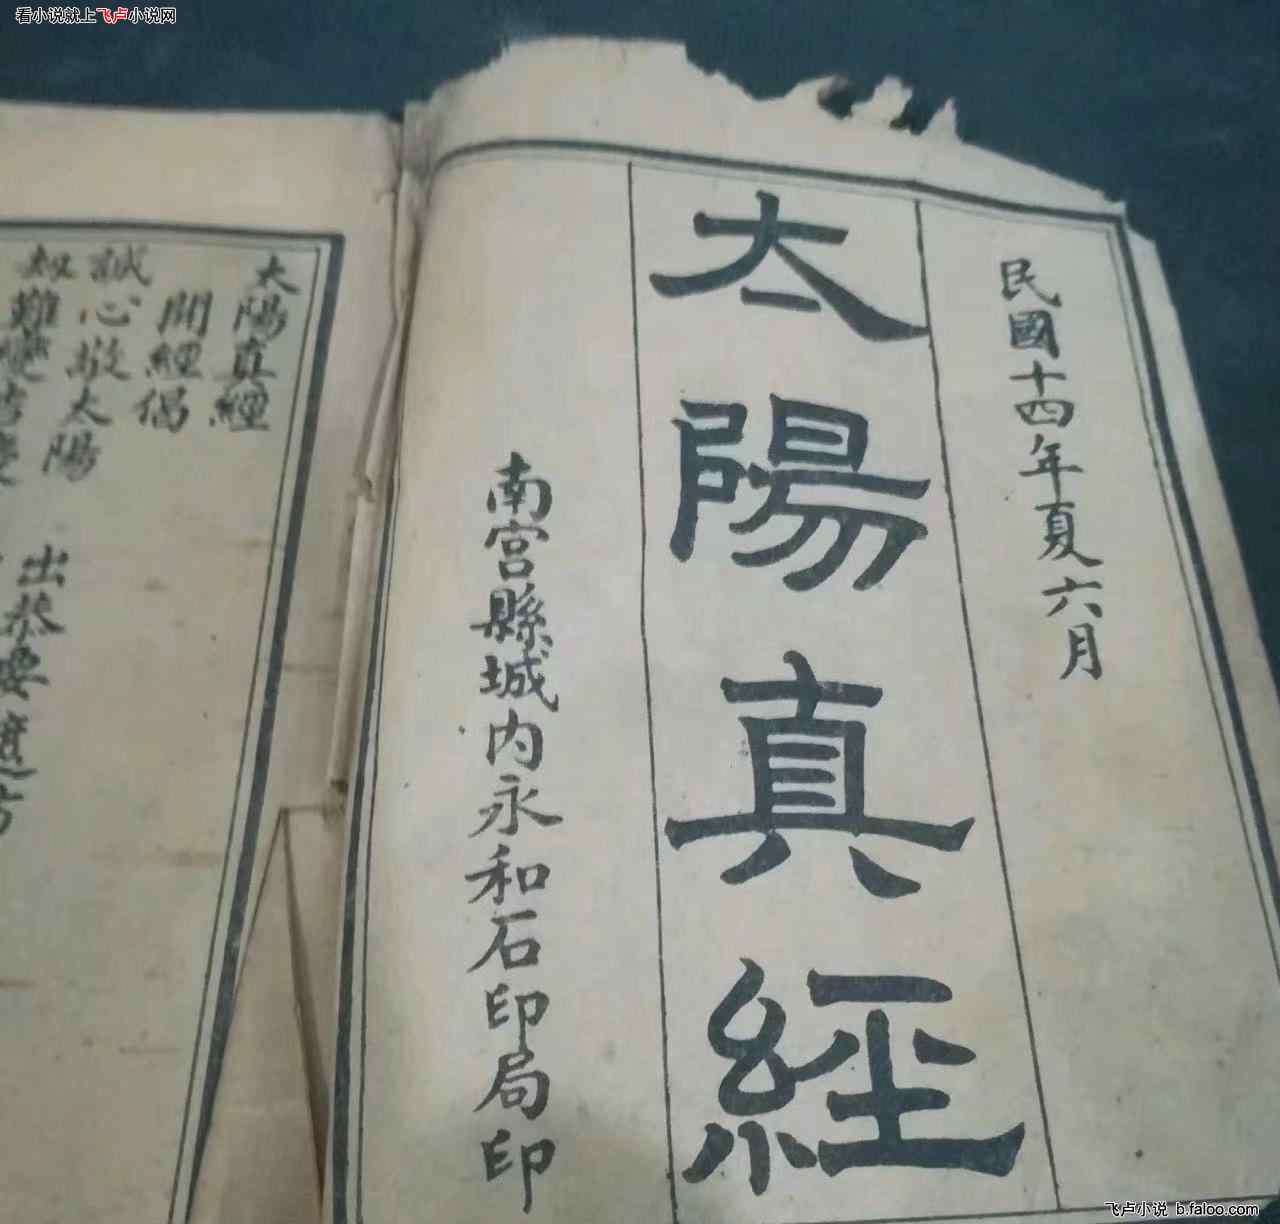 看小说就上飞卢小说网
民國十四年夏六月
太陽真經
南宫縣城内永和石印局印
太陽真經
開經偈
誠心敬太陽 出恭要避方
飞卢小说 b.faloo.com